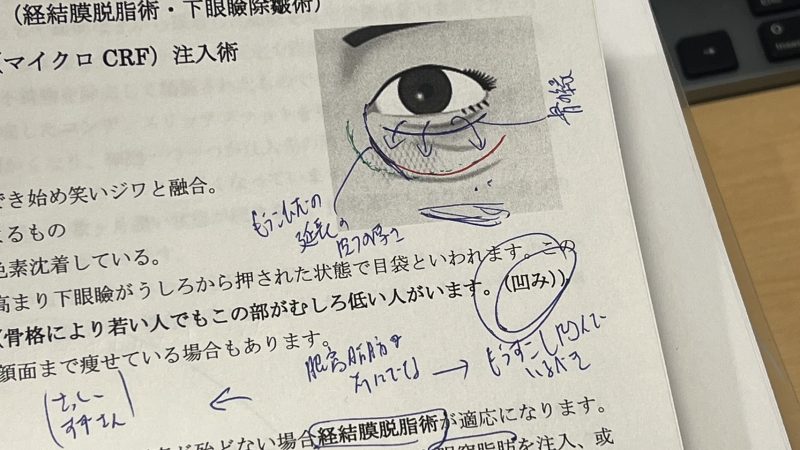 （経結膜脱脂術・下眼瞼除皺術）
（マイクロ CRF）注入術
骨の縁
でき始め笑いジワと融合。
もうこひだの
延長の
皮フの厚さ
るもの
色素沈着している。
高まり下眼瞼がうしろから押された状態で目袋といわれます。この
（骨格により若い人でもこの部がむしろ低い人がいます。（凹み））
顔面まで痩せている場合もあります。
眼窩脂肪
もうすこし凹んで
いるべき
殆どない場合経結膜脱脂術が適応になります。
眼窩脂肪を注入、或